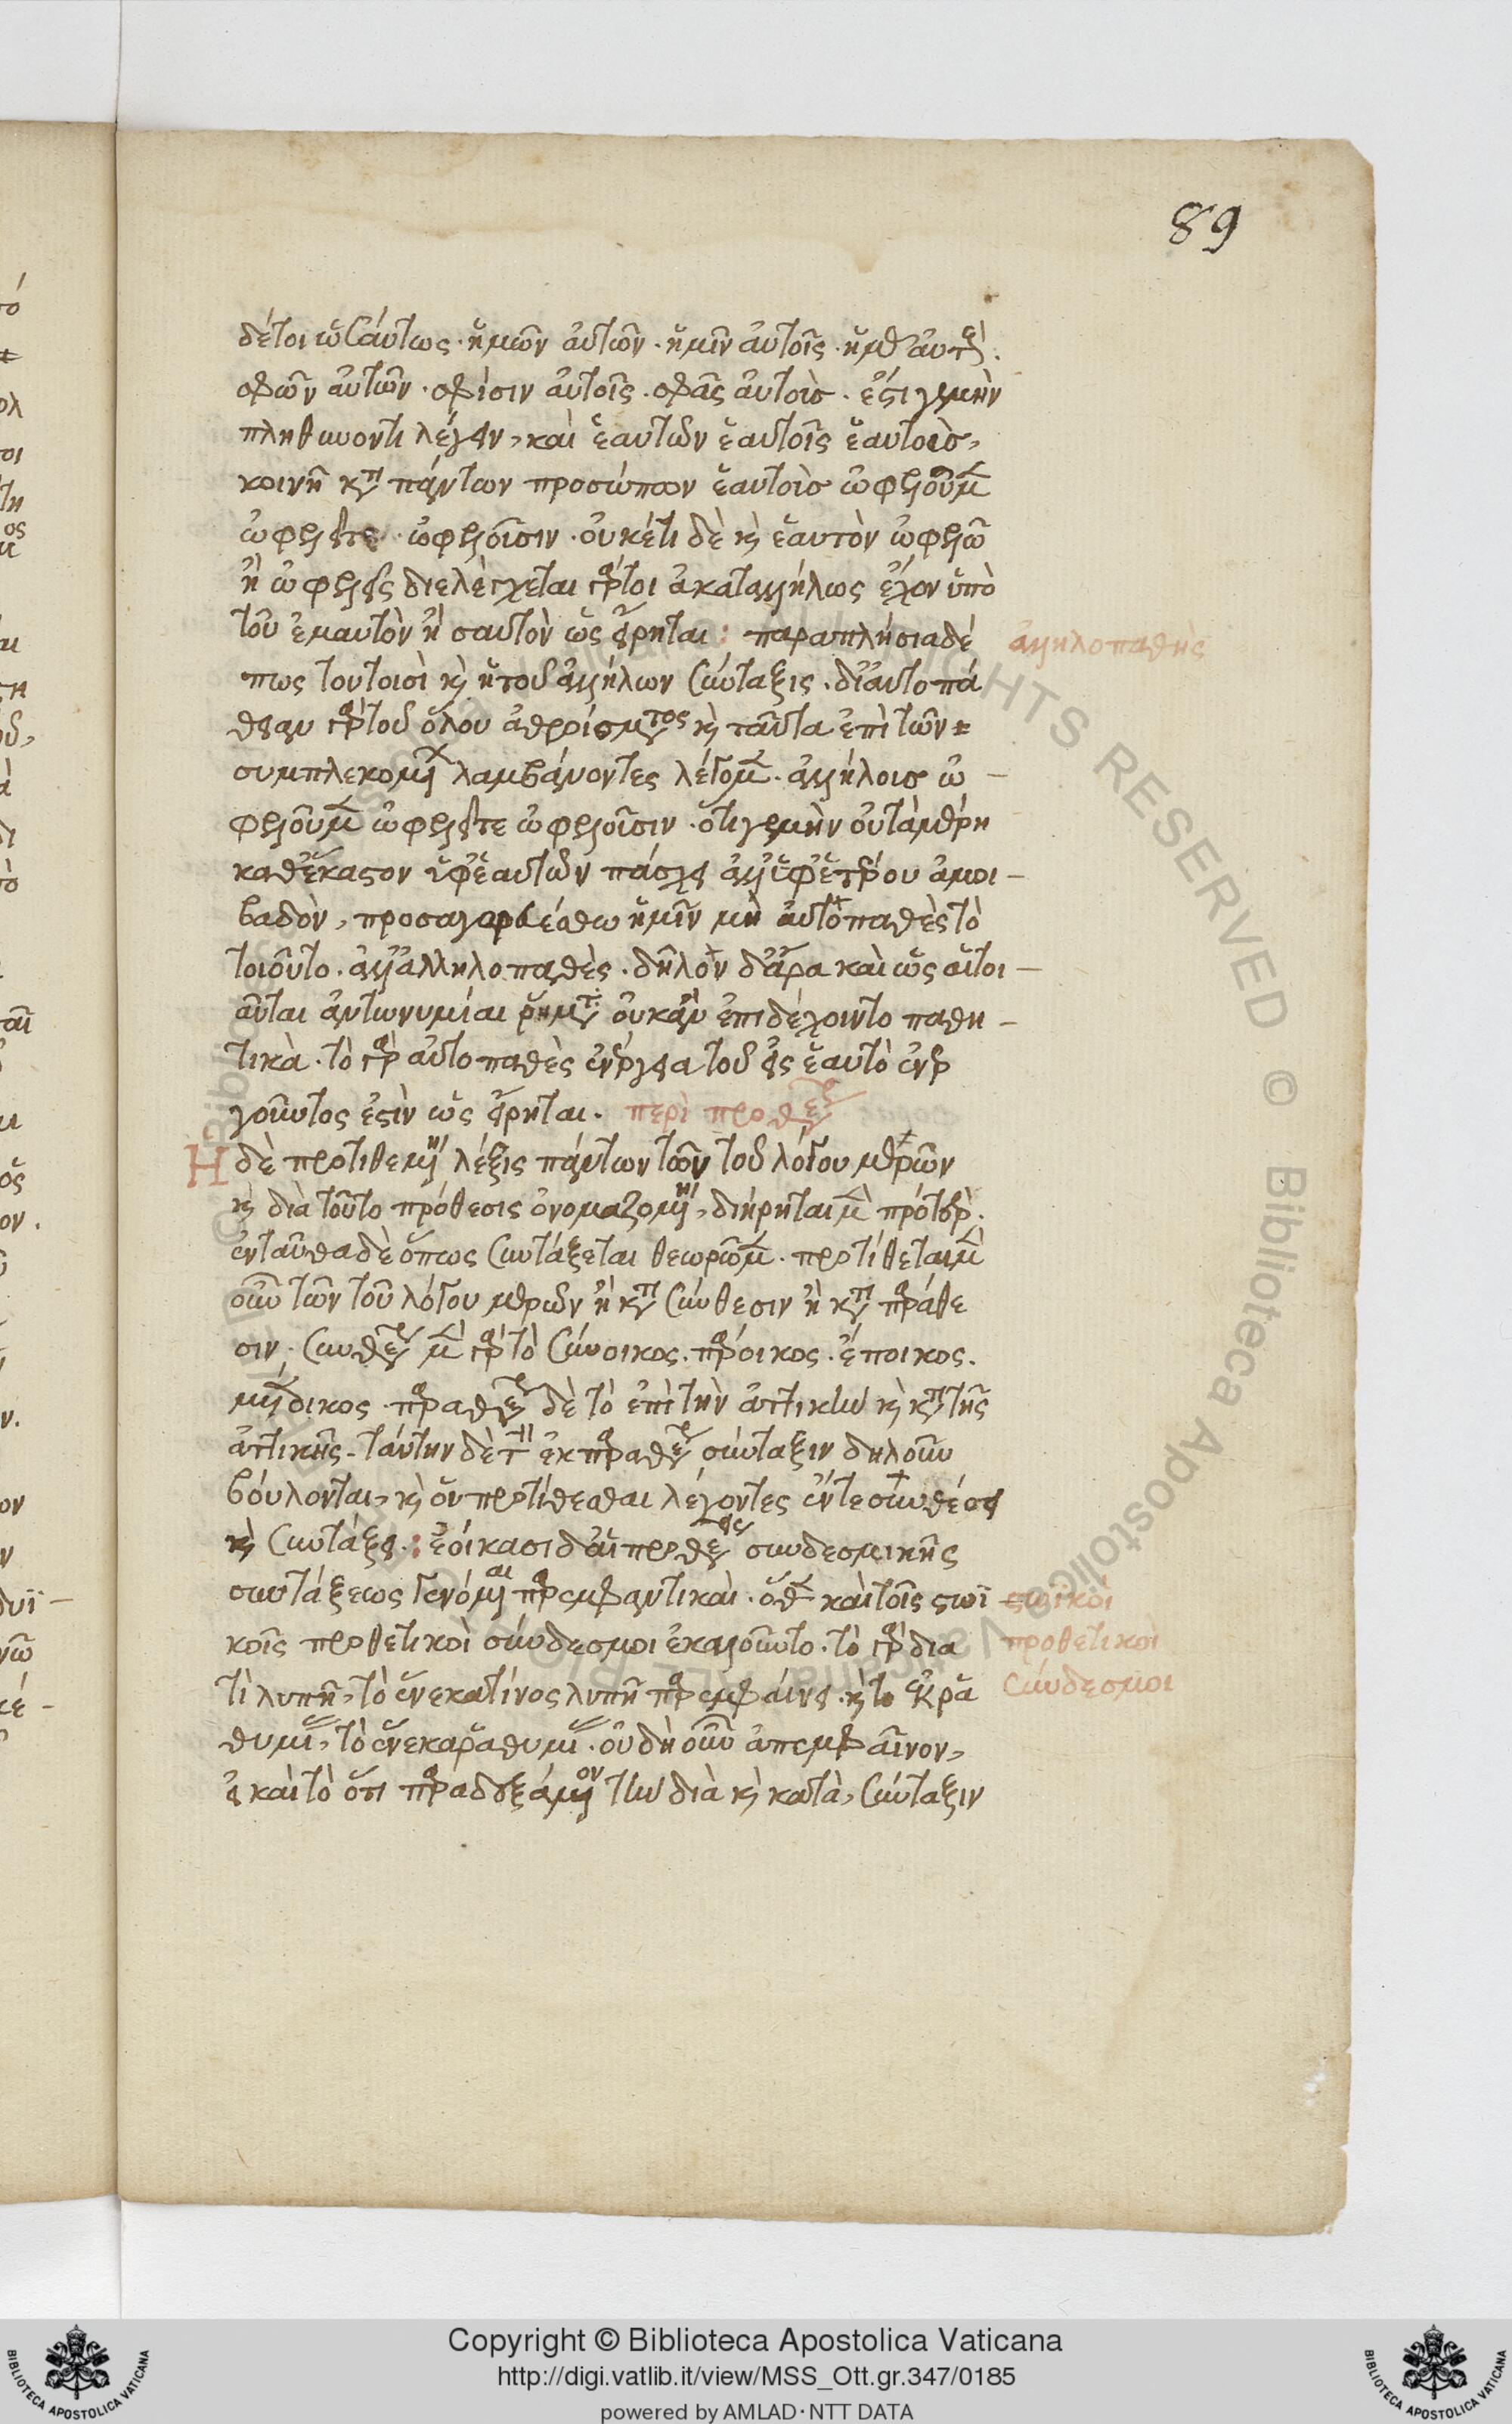 89
δέτοι ὡσαύτως · ἡμῶν αὐτῶν · ἡμῖν αὐτοῖς · ἡμᾶς αὐτούς ·
σφῶν αὐτῶν · σφίσιν αὐτοῖς · σφᾶς αὐτοὺς · ἔστι γεμὴν
πληθυνοντι λέγειν, καὶ ἑαυτῶν ἑαυτοῖς ἑαυτοὺς,
κοινῆ κατὰ πάντων προσώπων ἑαυτοὺς ὠφελοῦμεν
ὠφελεῖτε · ὠφελοῦσιν · οὐκέτι δὲ καὶ ἑαυτὸν ὠφελῶ
ἢ ὠφελεῖς διελέγχεται γάρτοι ἀκαταλλήλως ἔχον ὑπὸ
τοῦ ἐμαυτὸν ἢ σαυτὸν ὡς εἴρηται : παραπλήσιαδέ
ἀλληλοπαθὴς
πως τουτοισὶ καὶ ἡτοῦ ἀλλήλων σύνταξις · δι' αὐτοπά
θειαν γὰρτοῦ ὅλου ἀθροίσματος καὶ ταῦτα ἐπὶ τῶν
συμπλεκομένων λαμβάνοντες λέγομεν · ἀλλήλους ὠ –
φελοῦμεν ὠφελεῖτε ὠφελοῦσιν · ὅτι γεμὴν οὐτὰμέρη
καθ' ἕκαστον ὑφ' ἑαυτῶν πάσχει ἀλλ' ὑφ' ἑτέρου ἀμοι –
βαδὸν, προσαγορευέσθω ἡμῖν μὴ αὐτοπαθὲς τὸ
τοιοῦτο · ἀλλ' ἀλληλοπαθὲς · δῆλον δ' ἄρα καὶ ὡς αἵτοι –
αῦται ἀντωνυμίαι ῥήματα οὐκἂν ἐπιδέχοιντο παθη –
τικὰ · τὸ γὰρ αὐτοπαθὲς ἐνέργεια τοῦ εἰς ἑαυτὸ ἐνερ
γοῦντος ἐστὶν ὡς εἴρηται · περὶ προθέσεως
Η δὲ προτιθεμένη λέξις πάντων τῶν τοῦ λόγου μερῶν
καὶ διὰ τοῦτο πρόθεσις ὀνομαζομένη, διήρηται μὲν πρότερον ·
ἐνταῦθα δὲ ὅπως συντάξεται θεωρῶμεν · προτίθεται μὲν
οὖν τῶν τοῦ λόγου μερῶν ἢ κατὰ σύνθεσιν ἢ κατὰ παράθε
σιν · συνθέσεως μὲν γὰρ τὸ σύνοικος · πάροικος · ἔποικος ·
μένδικος · παραθέσεως δὲ τὸ ἐπὶ τὴν ἀττικὴν καὶ κατὰ τῆς
ἀττικῆς · ταύτην δὲ τὴν ἐκ παραθέσεως σύνταξιν δηλοῦν
βούλονται, καὶ ὃν προτίθεσθαι λέγοντες ἔν τε συνθέσει
καὶ συντάξει : ἐοίκασι δ' αἱ προθέσεις συνδεσμικῆς
συντάξεως γενόμεναι παρεμφαντικαὶ · ὅθεν καὶ τοῖς στωϊ –
στωϊκοὶ
κοῖς προθετικοὶ σύνδεσμοι ἐκαλοῦντο · τὸ γὰρ δια
προθετικοὶ
τὶ λυπῆ, τὸ ἕνεκα τίνος λυπῆ παρεμφαίνει · καὶ το ἐκ ῥᾳ
σύνδεσμοι
θυμίας, τὸ ἕνεκα ῥᾳθυμίας · οὐδὴ οὖν ἀπεμφαῖνον,
εἰ καὶ τὸ ὅτι παραδεξάμενον τὴν διὰ καὶ κατὰ, σύνταξιν
Copyright © Biblioteca Apostolica Vaticana
http://digi.vatlib.it/view/MSS_Ott.gr.347/0185
powered by AMLAD·NTT DATA